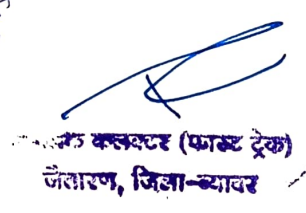 कलक्टर (फास्ट ट्रेक)
जैतारण, जिला-ब्यावर